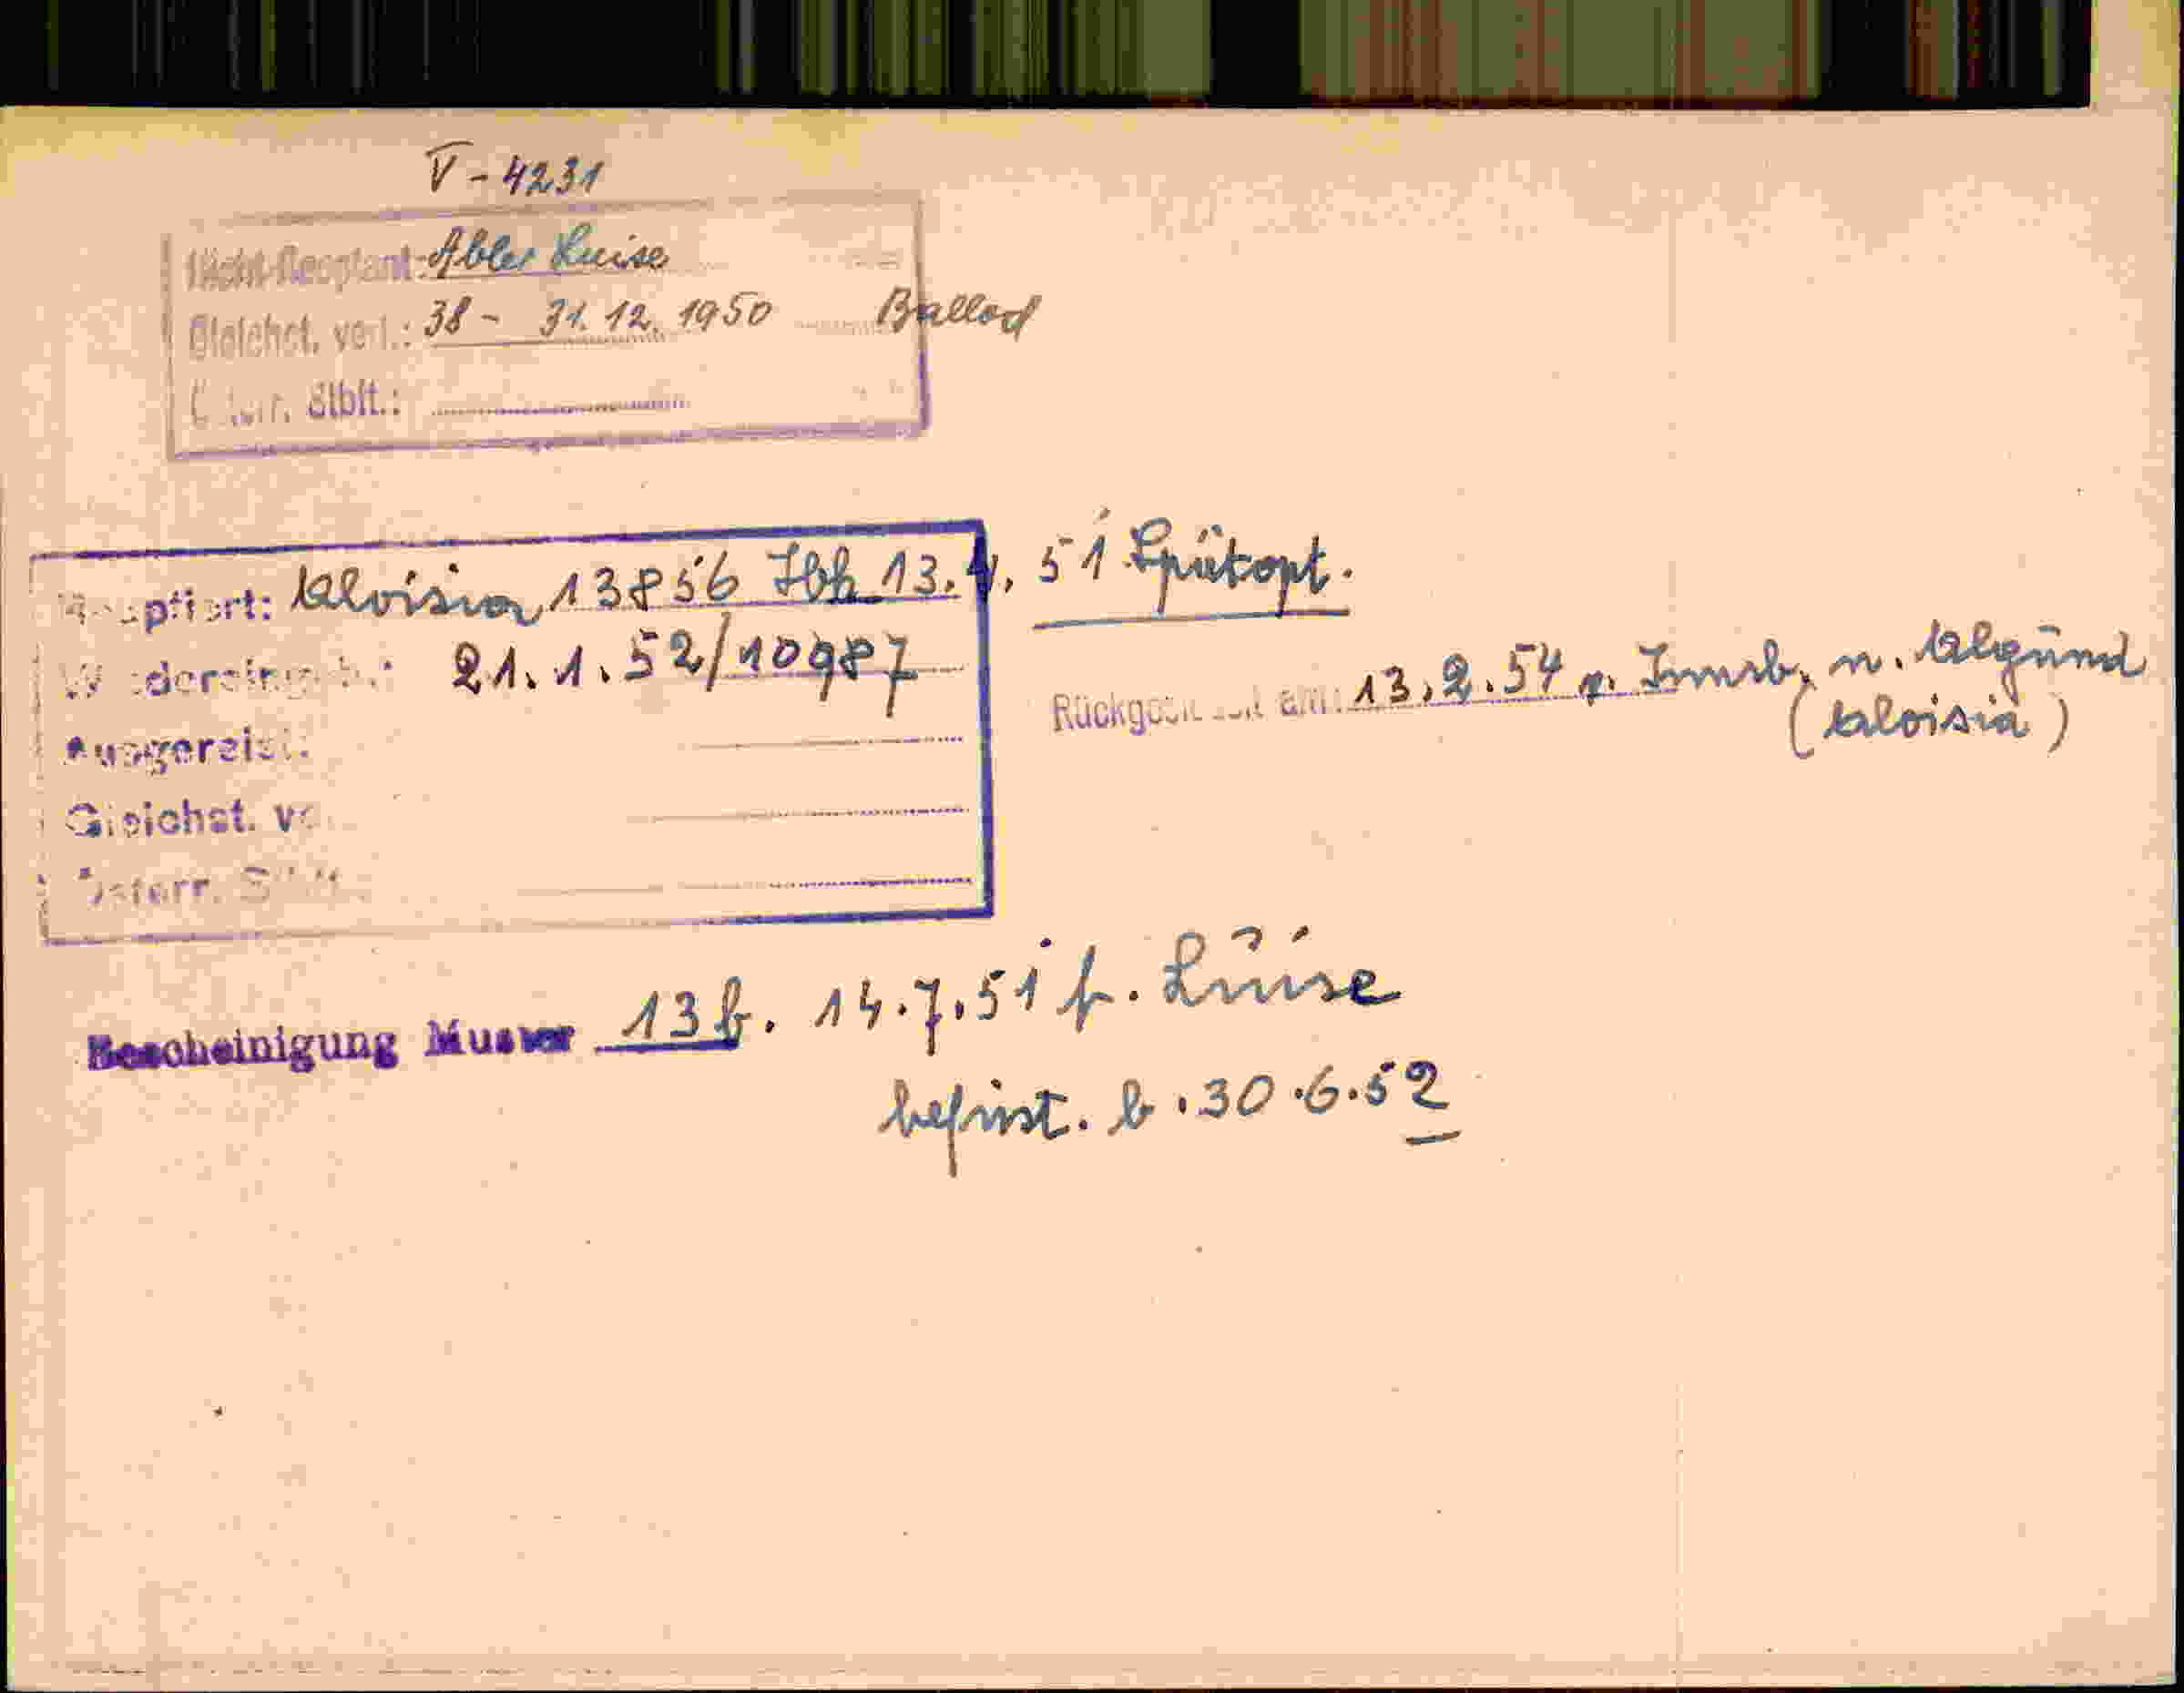 V - 4231
Nicht-Reoptant: Abler Luise
Gleichst. verl.: 38 - 31. 12. 1950 Ballod
Österr. Stbft.:
Reoptiert: Aloisia 13856 Ibk 13. 51 Spätopt.
Wiedereingeb.: 21. 1. 52/10987
Rückgesiedelt am: 13. 2. 54 v. Innsb. n. Algund
(Aloisia)
Ausgereist:
Gleichst. v
Österr. Stbft.
Bescheinigung Muster 13b. 14. 7. 51 f. Luise
befrist. b. 30. 6. 52